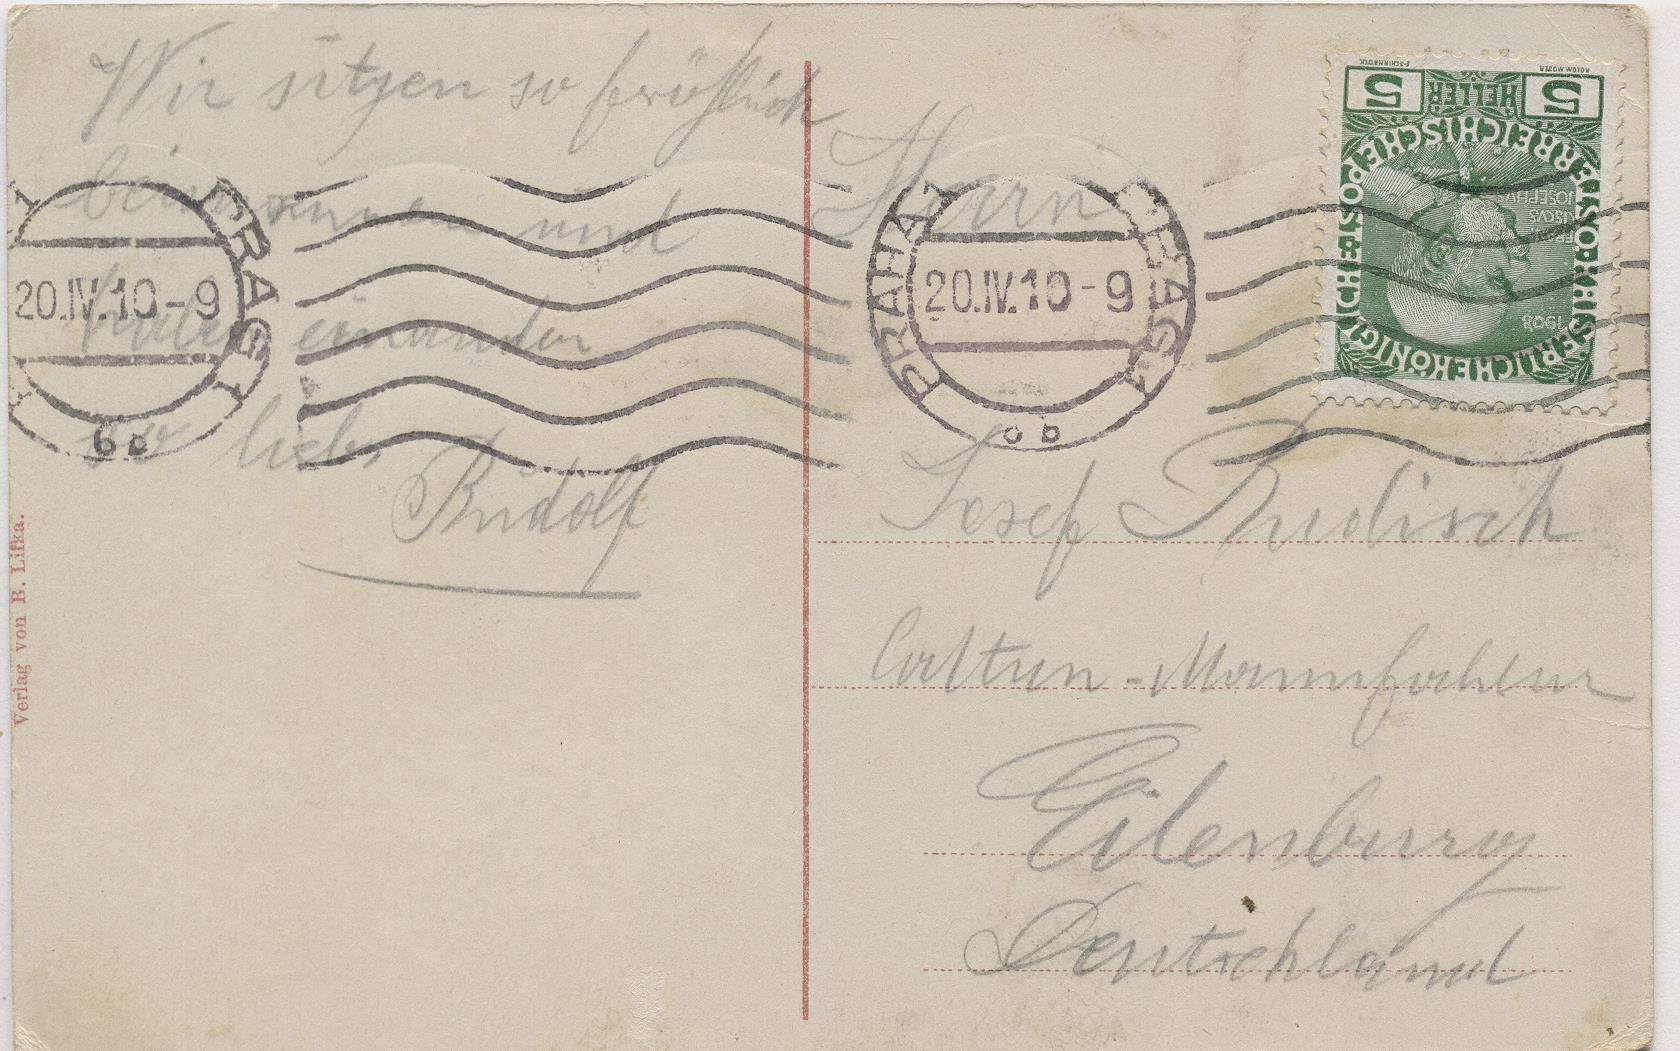 Wir sitzen so fröhlich
beisammen und
haben einander
so lieb.
Rudolf
Verlag von B. Lifka.
PRAG 1
20.IV.10-9
6b
Herrn
Josef Rudisch
Cattun-Mannfachtur
Eilenburg
Deutschland
PRAHA 1 PRAG 1
20.IV.10-9
6b
5 HELLER 5
KAISERLICHE KÖNIGLICHE ÖSTERREICHISCHE POST
FRANCISCVS
JOSEPHVS I
1908
KOLOM. MOSER
F. SCHIRNBÖCK